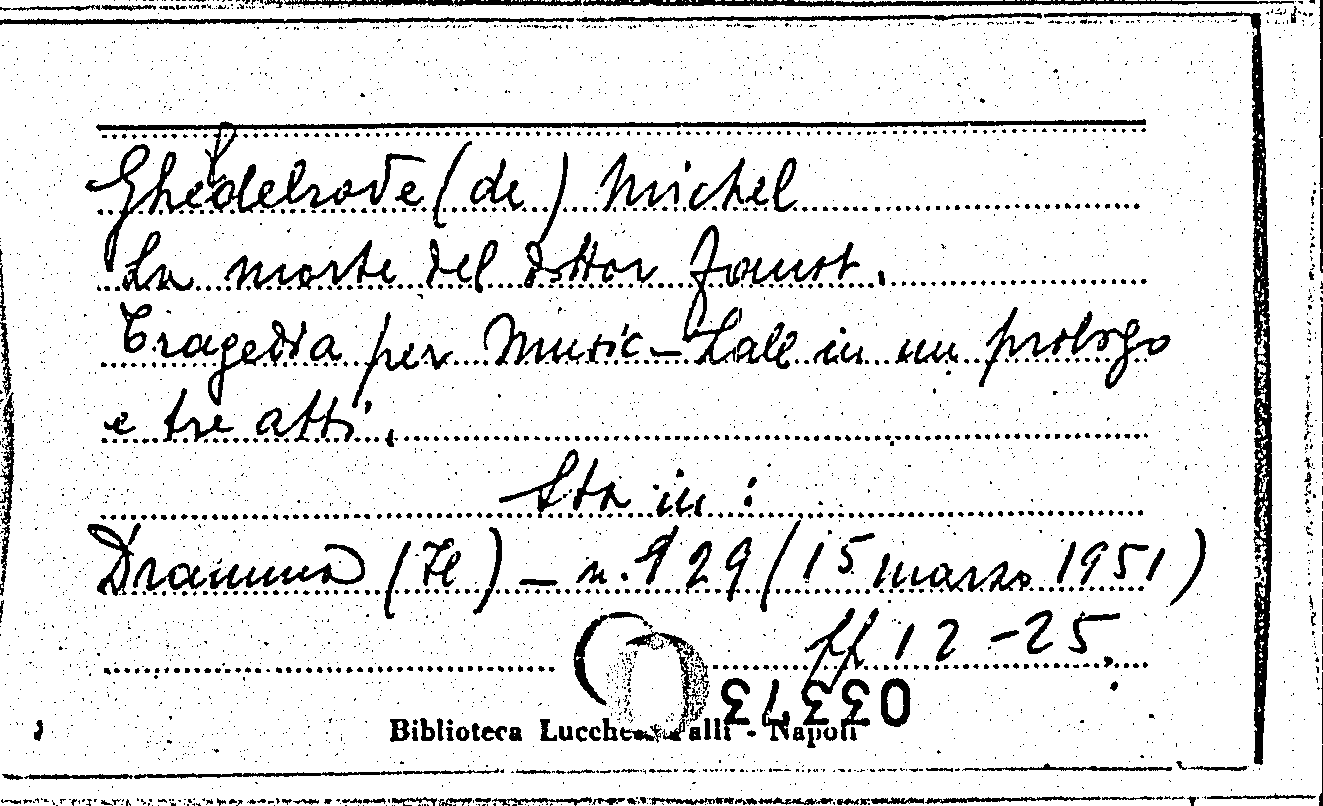 Ghelderode (de) Michel
La morte del dottor Faust.
Tragedia per Music-Hall in un prologo
e tre atti.
Sta in:
Dramma (Il) - n. 129 (15 marzo 1951)
ff 12-25.
033373
Biblioteca Lucchesi Palli - Napoli